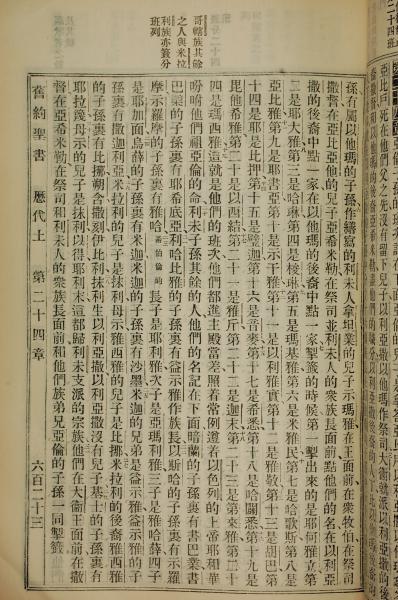 哥轄族其餘
之人與米拉
利族亦籤分
班列
孫有屬以他瑪的子孫作繕寫的利未人拿坦業的兒子示瑪雅在王面前在衆牧伯在祭司
撒督在亞比亞他的兒子亞希米勒在祭司並利未人的衆族長面前點他們的名在以利亞
撒的後裔中點一家在以他瑪的後裔中點一家掣籤的時候第一掣出來的是耶何雅立第
二是耶大雅第三是哈琳第四是梭琳第五是瑪基雅第六是米雅民第七是哈歌斯第八是
亞比雅第九是耶書亞第十是示干雅第十一是以利雅實第十二是雅敬第十三是胡巴第
十四是耶是比押第十五是璧迦第十六是音麥第十七是希悉第十八是哈闢悉第十九是
毘他希雅第二十是以西結第二十一是雅斤第二十二是迦末第二十三是第來雅第二十
四是瑪西雅這就是他們的班次他們都進主殿當差照着常例遵着以色列的上帝耶和華
吩咐他們祖亞倫的命利未子孫其餘的人他們的名記在下面暗蘭的子孫裏有書巴業書
巴業的子孫裏有耶希底亞利哈比雅的子孫裏有益示雅作族長以斯哈的子孫裏有示羅
摩示羅摩的子孫裏有雅哈希伯倫的長子是耶利雅次子是亞瑪利雅三子是雅哈薛四子
是耶加面烏薛的子孫裏有米迦米迦的子孫裏有沙墨米迦的兄弟是益示雅益示雅的子
孫裏有撒迦利亞米拉利的兒子是抹利母示雅西雅的兒子是比挪米拉利的後裔雅西雅
的子孫裏有比挪朔含撒刻伊比利抹利生以利亞撒以利亞撒沒有兒子基士的子孫裏有
耶拉篾母示的兒子是抹利以得耶利末這都歸利未支派的宗族他們在大衞王面前在撒
督在亞希米勒在祭司和利未人的衆族長面前和他們族弟兄亞倫的子孫一同掣籤
舊約聖書 歷代上 第二十四章 六百二十三